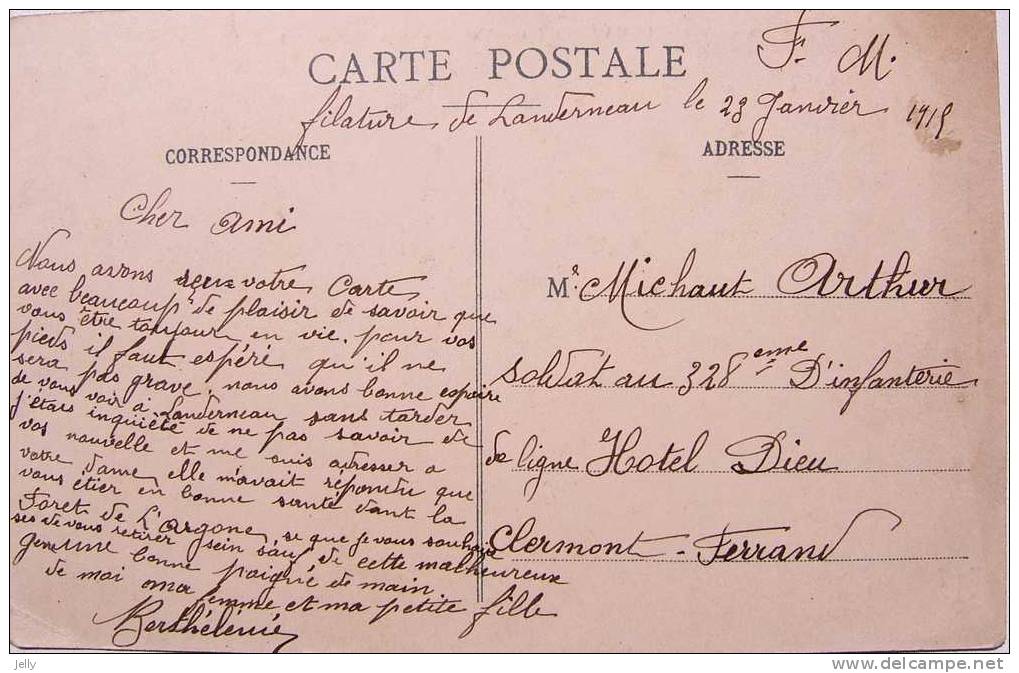 F. M.
CARTE POSTALE
filature de Landerneau le 23 Janvier 1915
CORRESPONDANCE
Cher Ami
Nous avons reçu votre Carte
avec beaucoup de plaisir de savoir que
vous être toujour en vie. pour vos
pieds il faut espéré qu'il ne
sera pas grave, nous avons bonne espoire
de vous voir à Landerneau sans tarder
j'étais inquiété de ne pas savoir de
vos nouvelle et me suis adresser a
votre dame, elle m'avait répondu que
vous étier en bonne santé dant la
Foret de L'argone, se que je vous souhaite
ses de vous retirer sein sauf de cette malheureux
une bonne poigné de main
de moi ma femme et ma petite fille
Berthélémé
ADRESSE
Mr. Michaut Arthur
soldat au 328eme D'infanterie
de ligne Hotel Dieu
Clermont-Ferrand
jelly
www.delcampe.net